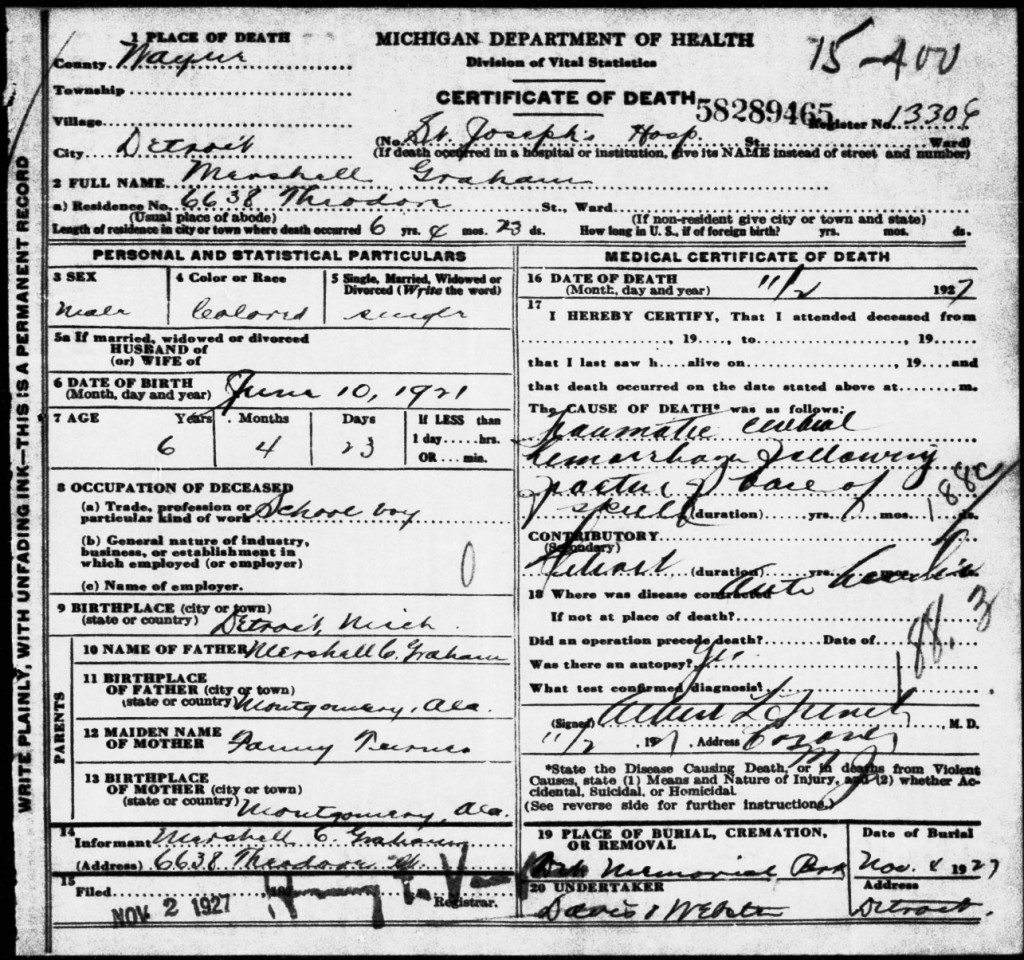 1 PLACE OF DEATH
County Wayne
Township
Village
City Detroit
MICHIGAN DEPARTMENT OF HEALTH
Division of Vital Statistics
CERTIFICATE OF DEATH
15-400
58289465
Register No. 13306
(No. St. Joseph's Hosp. St. Ward)
(If death occurred in a hospital or institution, give its NAME instead of street and number)
2 FULL NAME Marshall Graham
a) Residence No. 6638 Theodore St., Ward
(Usual place of abode) (If non-resident give city or town and state)
Length of residence in city or town where death occurred 6 yrs. 4 mos. 23 ds. How long in U. S., if of foreign birth? yrs. mos. ds.
WRITE PLAINLY, WITH UNFADING INK—THIS IS A PERMANENT RECORD
PERSONAL AND STATISTICAL PARTICULARS
3 SEX
Male
4 Color or Race
Colored
5 Single, Married, Widowed or
Divorced (Write the word)
single
5a If married, widowed or divorced
HUSBAND of
(or) WIFE of
6 DATE OF BIRTH
(Month, day and year) June 10, 1921
7 AGE Years Months Days If LESS than
1 day hrs.
6 4 23
OR min.
8 OCCUPATION OF DECEASED
(a) Trade, profession or
particular kind of work School boy
(b) General nature of industry,
business, or establishment in
which employed (or employer) 0
(c) Name of employer.
9 BIRTHPLACE (city or town)
(state or country) Detroit, Mich.
PARENTS
10 NAME OF FATHER Marshall C. Graham
11 BIRTHPLACE
OF FATHER (city or town)
(state or country) Montgomery, Ala.
12 MAIDEN NAME
OF MOTHER Fanny
13 BIRTHPLACE
OF MOTHER (city or town)
(state or country) Montgomery, Ala.
14
Informant Marshall C. Graham
(Address) 6638 Theodore St.
15
Filed NOV 2 1927
Registrar.
MEDICAL CERTIFICATE OF DEATH
16 DATE OF DEATH
(Month, day and year) 11/2 1927
17
I HEREBY CERTIFY, That I attended deceased from
, 19 , to , 19
that I last saw h alive on , 19 and
that death occurred on the date stated above at m.
The CAUSE OF DEATH* was as follows:
Traumatic cerebral
hemorrhage following
fracture of base of
skull (duration) yrs. mos. 1 ds.
188c
CONTRIBUTORY
(Secondary)
(duration) yrs.
Auto
18 Where was disease contracted
If not at place of death?
188.3
Did an operation precede death? Date of
Was there an autopsy? Yes
What test confirmed diagnosis?
(Signed) Albert L. French M. D.
11/2 , 197 Address Coroner
*State the Disease Causing Death, or in deaths from Violent
Causes, state (1) Means and Nature of Injury, and (2) whether Ac-
cidental, Suicidal, or Homicidal.
(See reverse side for further instructions.)
19 PLACE OF BURIAL, CREMATION,
OR REMOVAL
Det. Memorial Park
Date of Burial
Nov. 4 1927
20 UNDERTAKER
Davis & Webster
Address
Detroit.